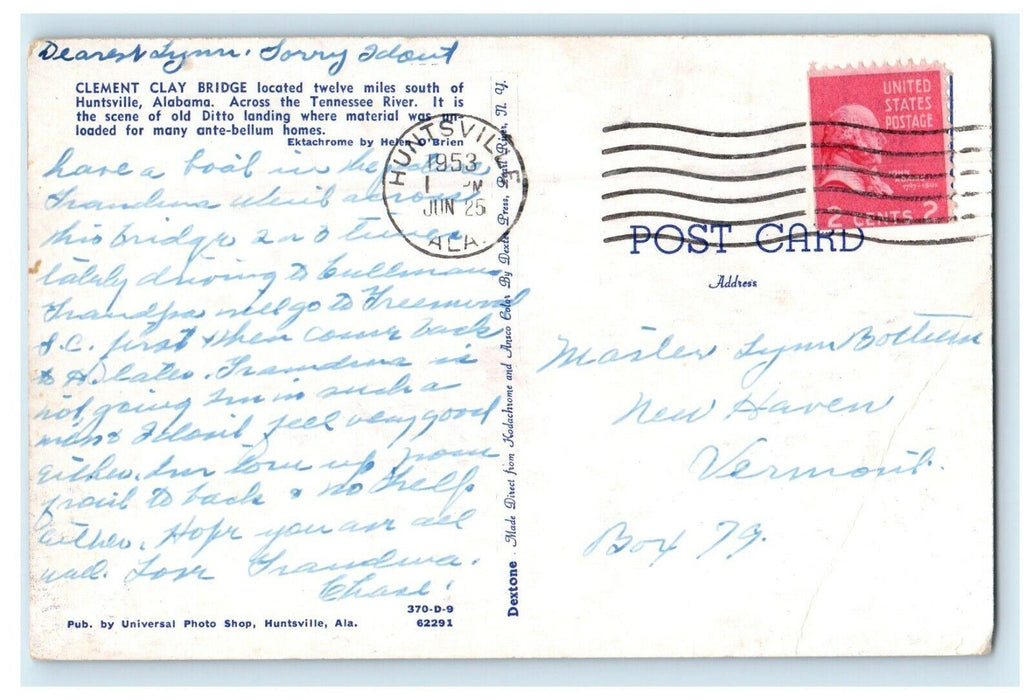 Dearest Lynn. Sorry I don't
CLEMENT CLAY BRIDGE located twelve miles south of
Huntsville, Alabama. Across the Tennessee River. It is
the scene of old Ditto landing where material was un-
loaded for many ante-bellum homes.
Ektachrome by Helen O'Brien
have a boat in the
Grandma went across
this bridge 2 or 3 times
lately driving to Cullman
Grandpa will go to Greenwood
S.C. first & then come back
to later. Grandma is
not going I'm in such a
mess I don't feel very good
either. I'm torn up from
front to back & no help
either. Hope you are all
well. Love Grandma.
Chase!
370-D-9
Pub. by Universal Photo Shop, Huntsville, Ala. 62291
Dextone Made Direct from Kodachrome and Ansco Color By Dexter Press, Pearl River, N. Y.
HUNTSVILLE
1953
1 PM
JUN 25
ALA.
UNITED
STATES
POSTAGE
2 CENTS 2
POST CARD
Address
Master Lynn Bottum
New Haven
Vermont.
Box 79.